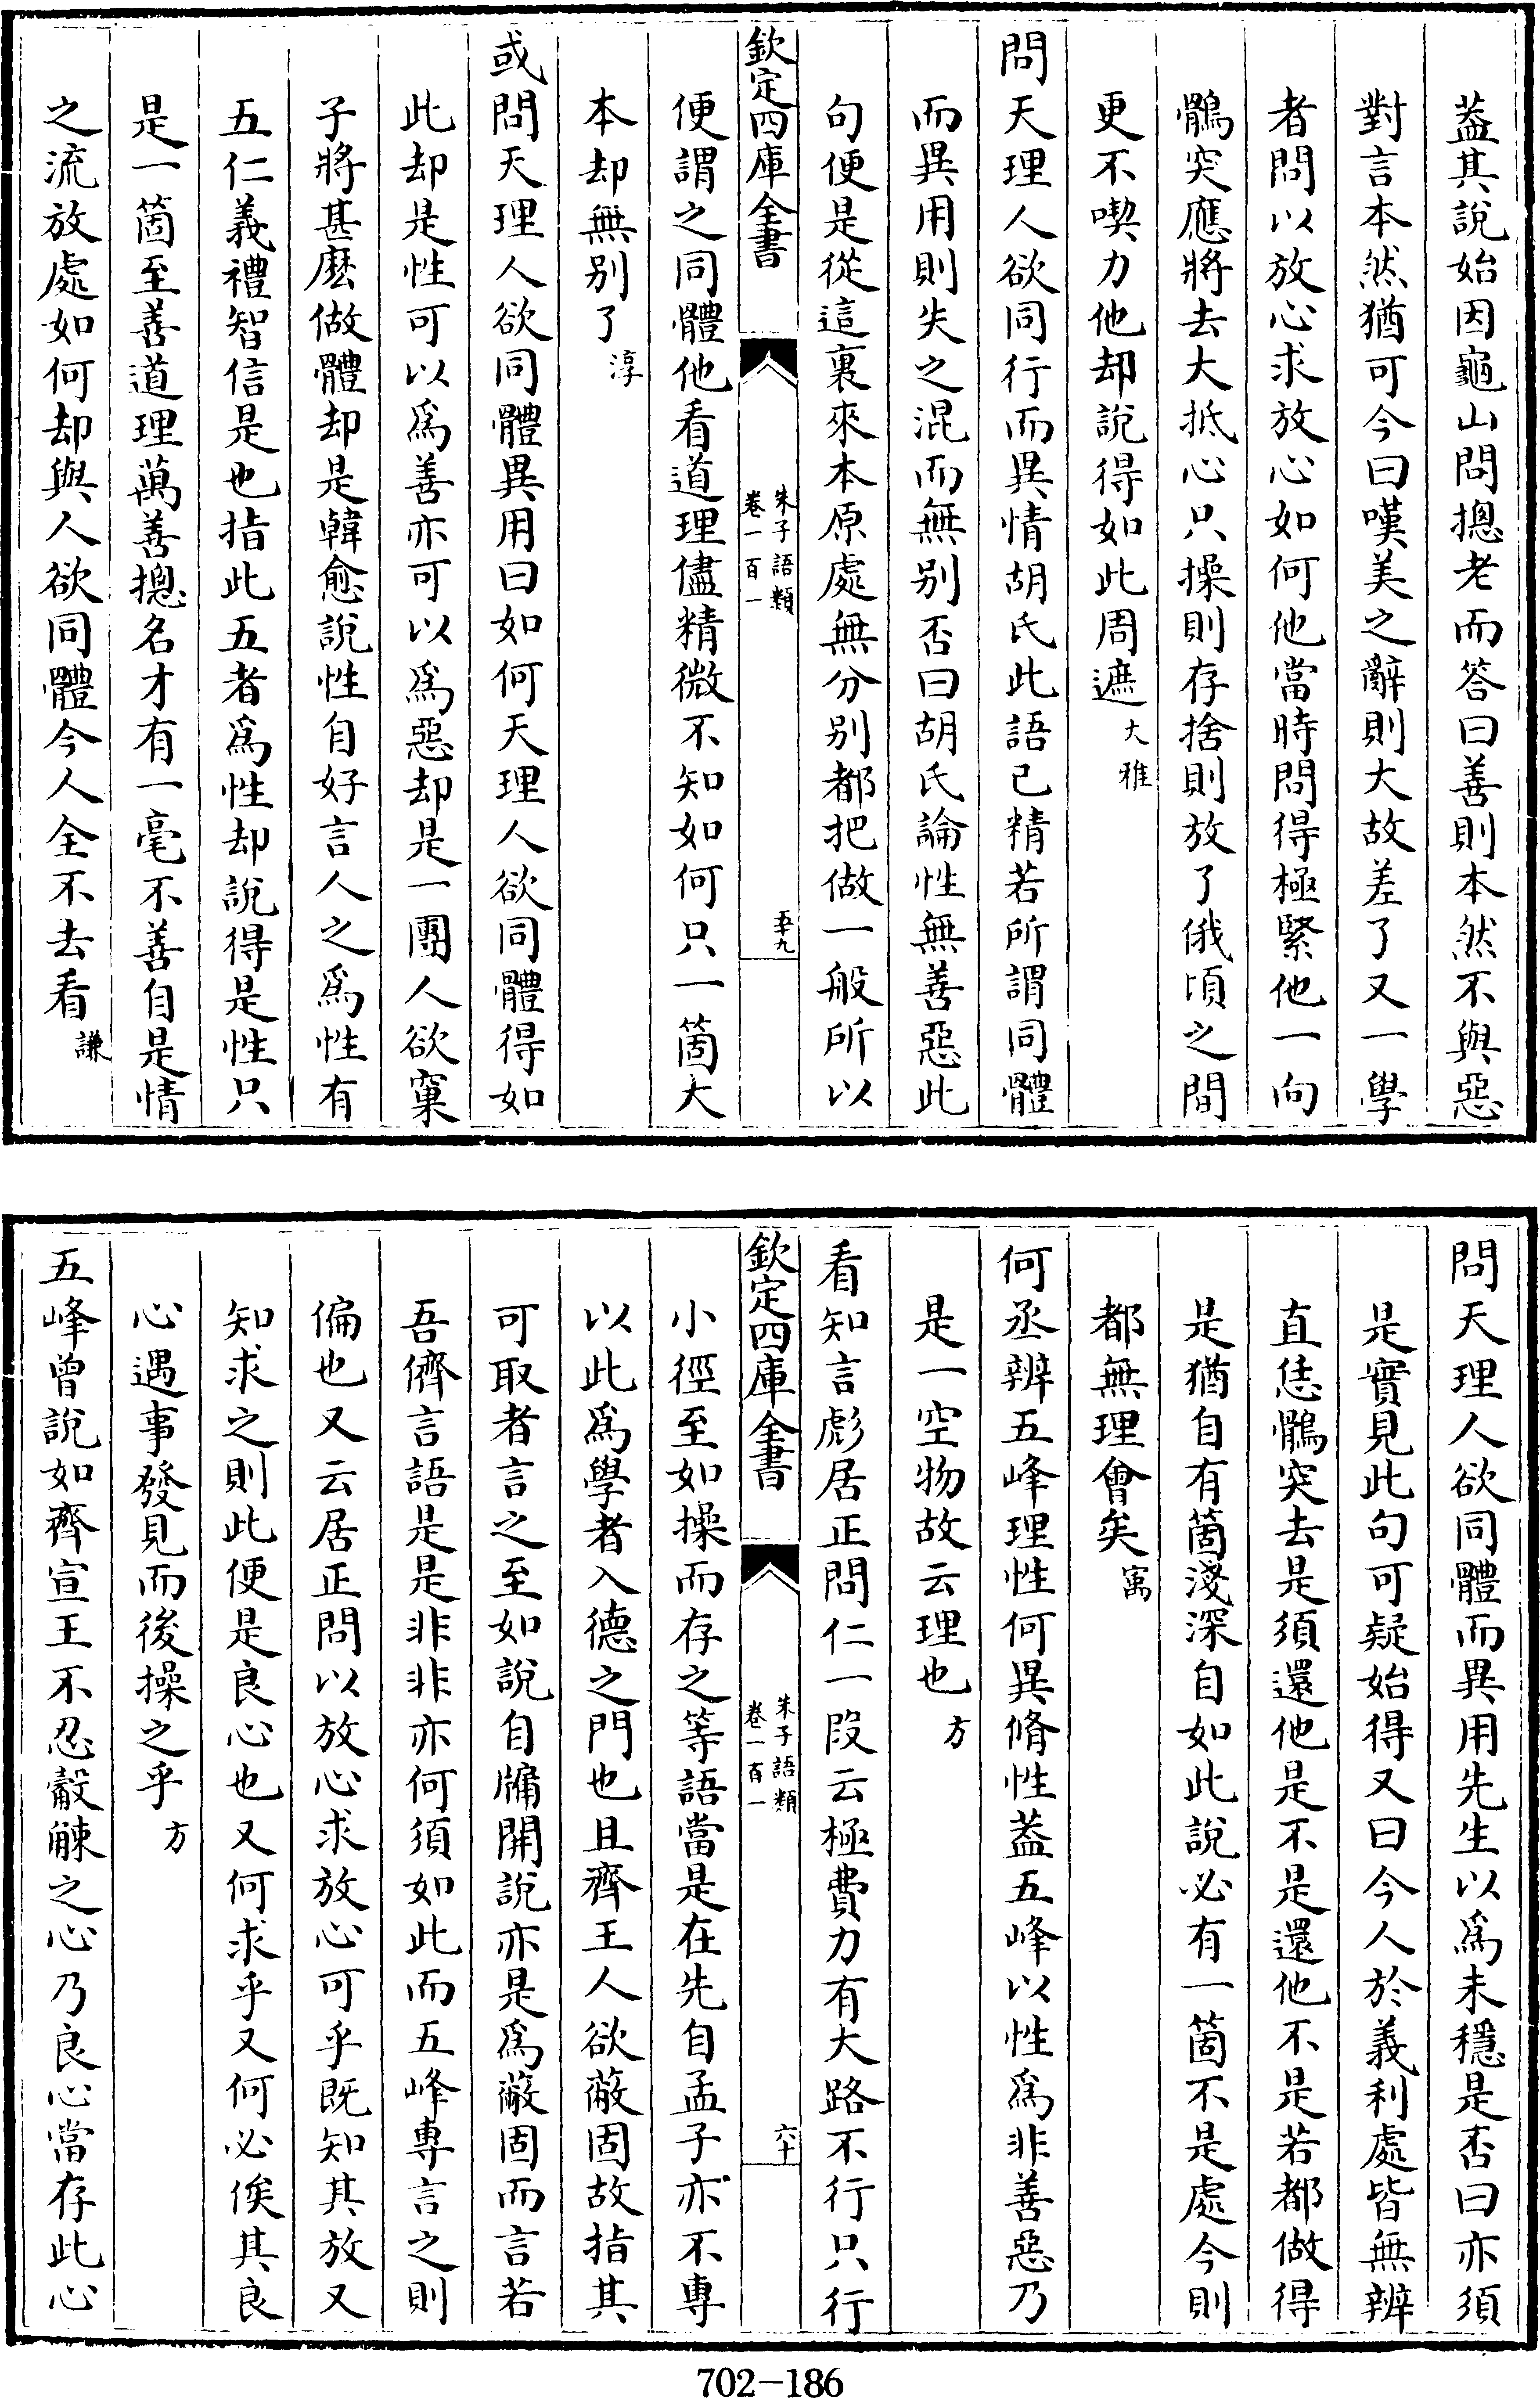 蓋其說始因龜山問摠老而答曰善則本然不與惡
對言本然猶可今曰嘆美之辭則大故差了又一學
者問以放心求放心如何他當時問得極緊他一向
鶻突應將去大抵心只操則存捨則放了俄頃之間
更不喫力他却說得如此周遮大雅
問天理人欲同行而異情胡氏此語已精若所謂同體
而異用則失之混而無别否曰胡氏論性無善惡此
句便是從這裏來本原處無分别都把做一般所以
欽定四庫全書
朱子語類
卷一百一
五十九
便謂之同體他看道理儘精微不知如何只一箇大
本却無别了淳
或問天理人欲同體異用曰如何天理人欲同體得如
此却是性可以爲善亦可以爲惡却是一團人欲窠
子將甚麽做體却是韓愈說性自好言人之爲性有
五仁義禮智信是也指此五者爲性却說得是性只
是一箇至善道理萬善摠名才有一毫不善自是情
之流放處如何却與人欲同體今人全不去看謙
問天理人欲同體而異用先生以爲未穩是否曰亦須
是實見此句可疑始得又曰今人於義利處皆無辨
直恁鶻突去是須還他是不是還他不是若都做得
是猶自有箇淺深自如此說必有一箇不是處今則
都無理會矣㝢
何丞辨五峰理性何異脩性蓋五峰以性爲非善惡乃
是一空物故云理也方
看知言彪居正問仁一段云極費力有大路不行只行
欽定四庫全書
朱子語類
卷一百一
六十
小徑至如操而存之等語當是在先自孟子亦不專
以此爲學者入德之門也且齊王人欲蔽固故指其
可取者言之至如說自牖開說亦是爲蔽固而言若
吾儕言語是是非非亦何須如此而五峰專言之則
偏也又云居正問以放心求放心可乎既知其放又
知求之則此便是良心也又何求乎又何必俟其良
心遇事發見而後操之乎方
五峰曾說如齊宣王不忍觳觫之心乃良心當存此心
702-186